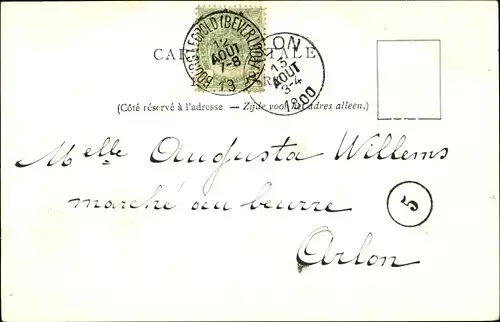 CAR TALE
BOURG-LEOPOLD (BEVERLOO)
12
AOUT
7-8
19
LON
13
AOUT
3-4
1900
(Côté réservé à l'adresse. — Zijde voor het adres alleen.)
Melle Augusta Willems
marché au beurre
5
Arlon